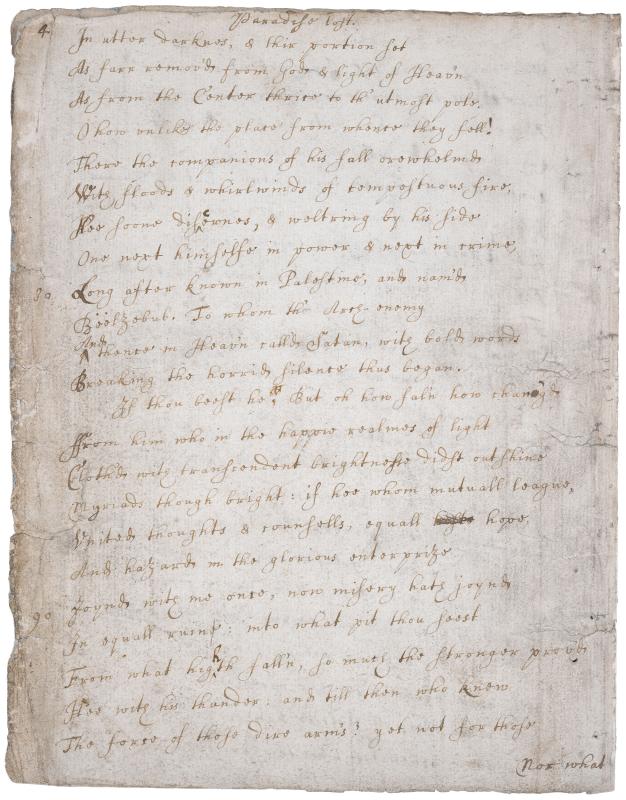 4. Paradise lost.
In utter darknes, & thir portion set
As farr remov'd from God & light of Heav'n
As from the Center thrice to th' utmost pole.
O how unlike the place from whence they fell!
There the companions of his fall orewhelmd
With floods & whirlwinds of tempestuous fire,
Hee soone discernes, & weltring by his side
One next himselfe in power & next in crime,
80. Long after known in Palestine, and nam'd
Bëëlzebub. To whom th' Arch-enemy
And thence in Heav'n calld Satan, with bold words
Breaking the horrid silence thus began.
If thou beest he; But oh how fal'n how chang'd
From him who in the happie realmes of light
Clothd with transcendent brightnesse didst outshine
Myriads though bright: if hee whom mutuall league,
United thoughts & counsells, equall hope,
And hazard in the glorious enterprize
Joynd with me once, now misery hath joynd
90 In equall ruine: into what pit thou seest
From what highth fall'n, so much the stronger prov'd
Hee with his thunder: and till then who knew
The force of those dire arm's? yet not for those
Nor what